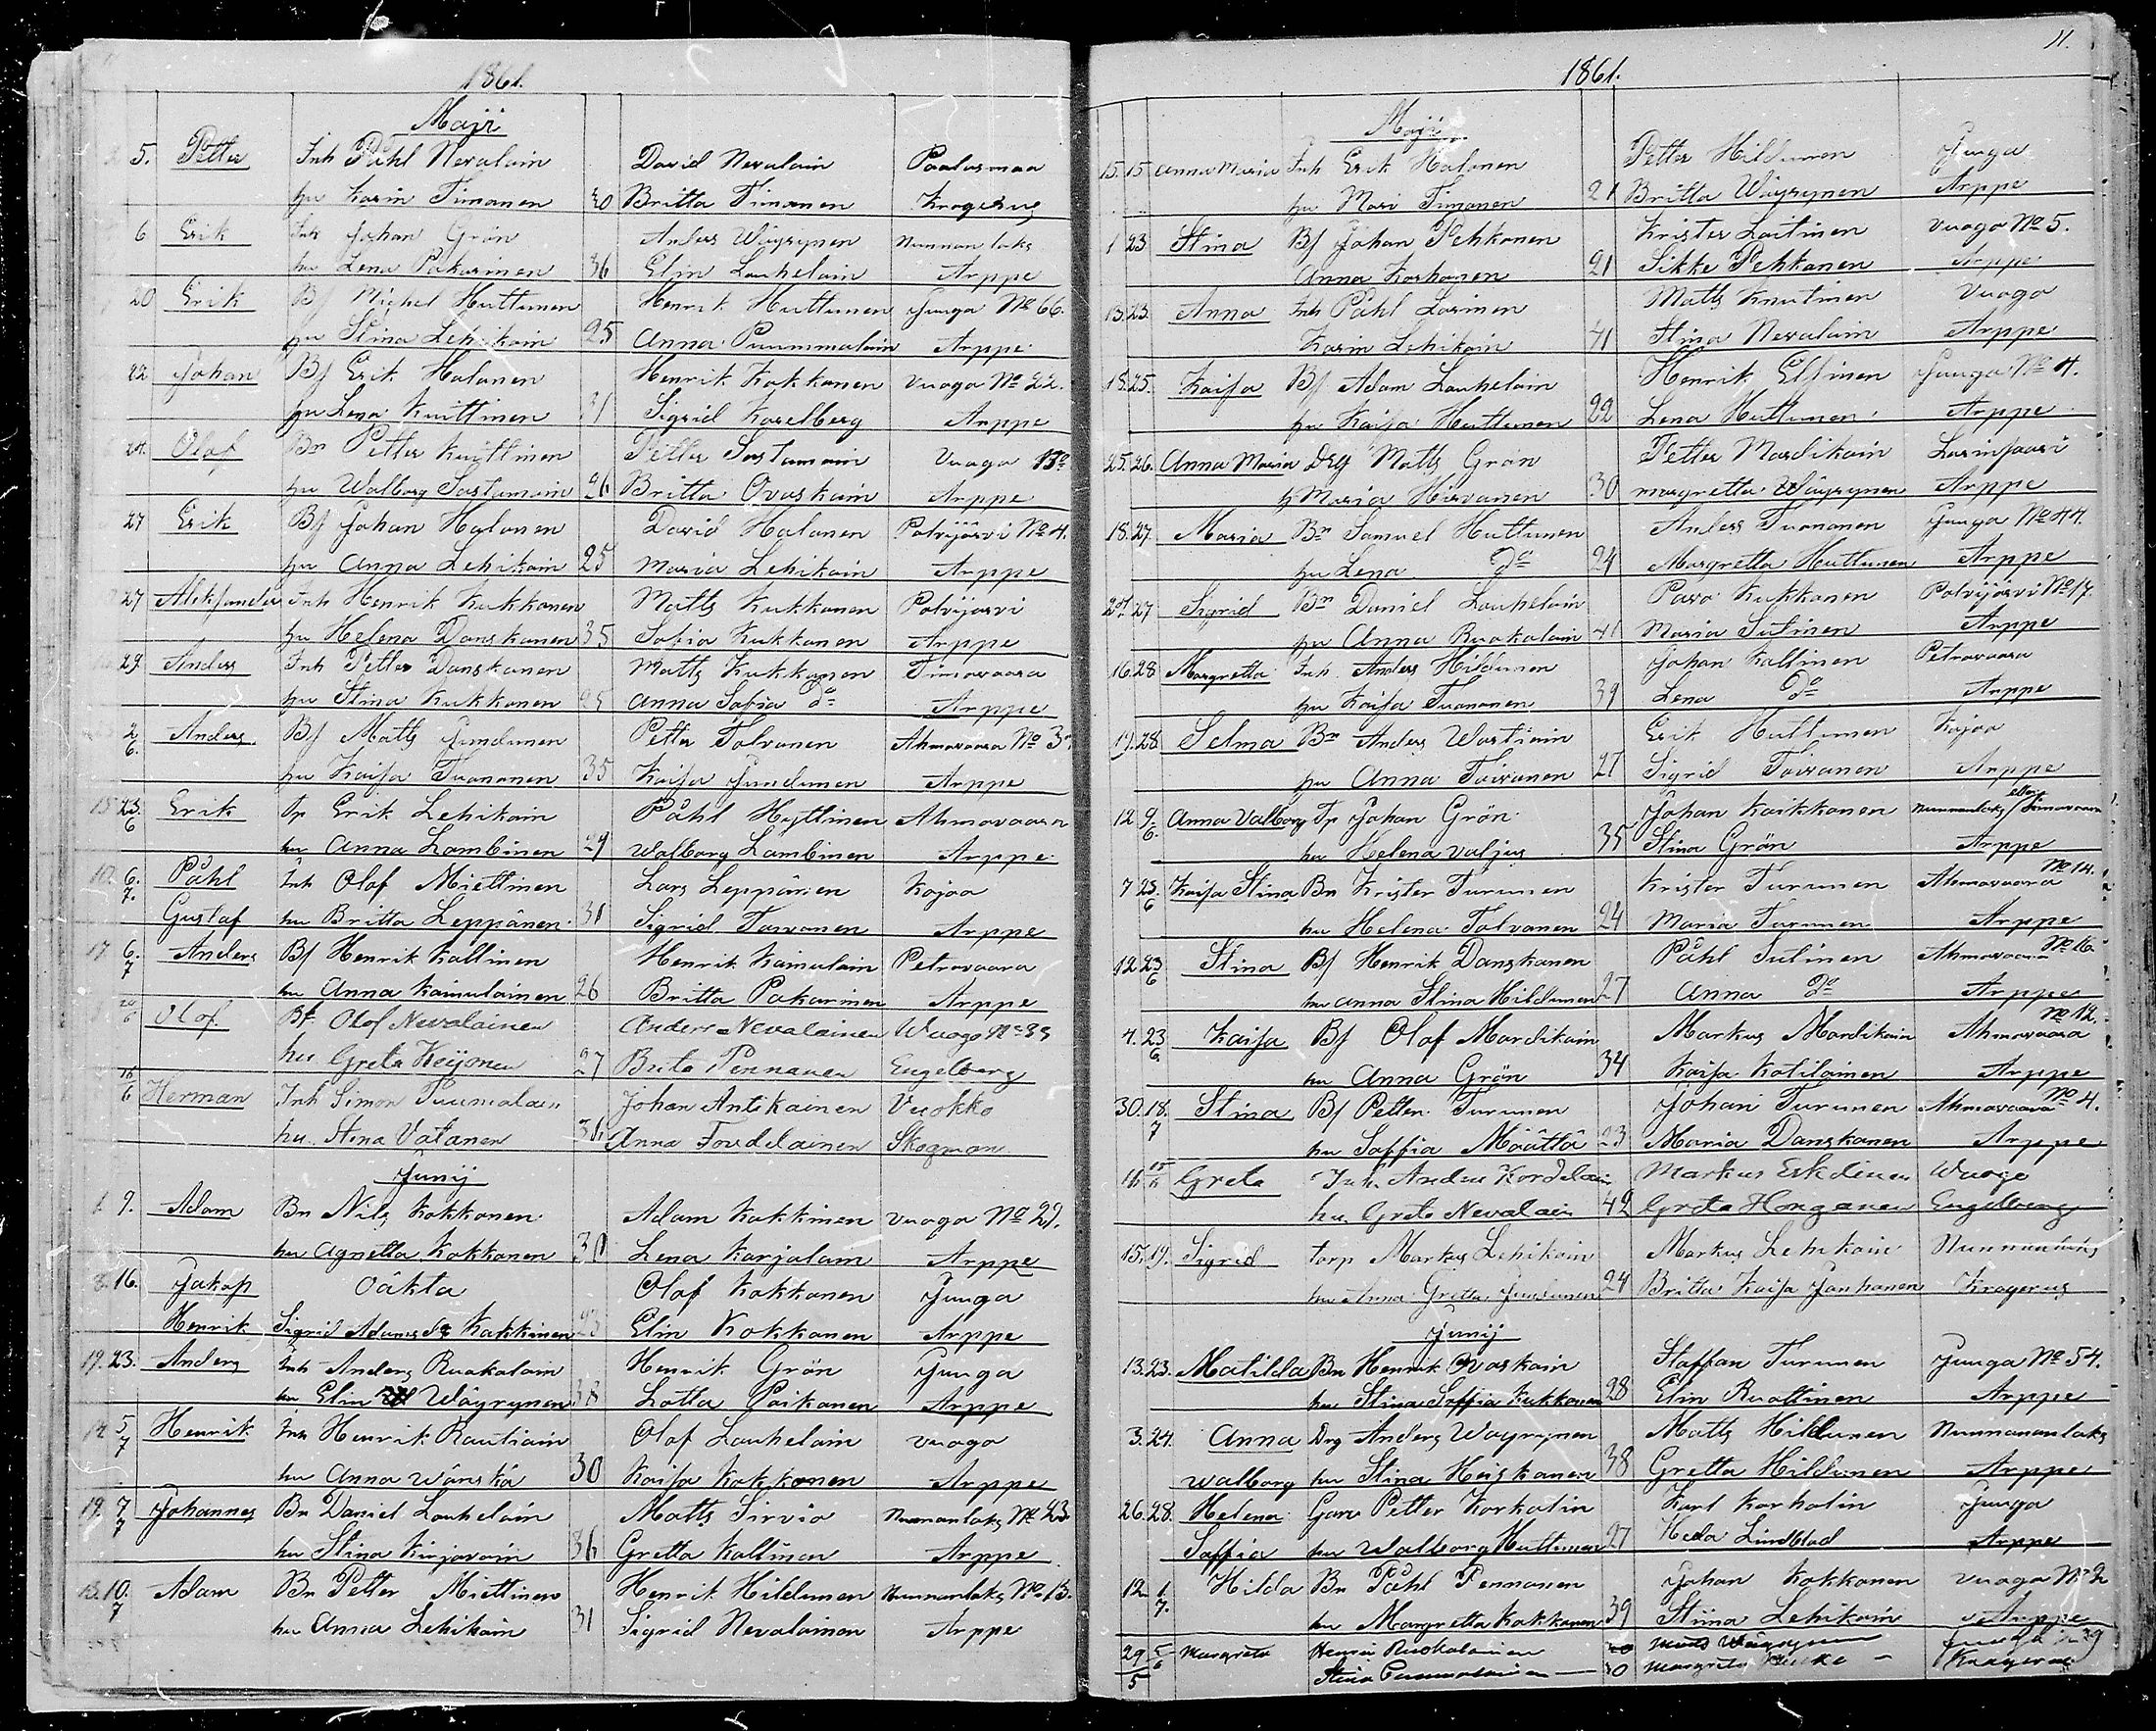 1861.
Maji
5. Petter Inh Påhl Nevalain David Nevalain Paalasmaa
hu Karin Timonen 30 Britta Timonen Krogerus
6 Erik Inh Johan Grön Anders Wäyrynen Nunnanlaks
hu Lena Pakarinen 36 Elin Laukelain Arppe
20 Erik Bf Michel Huttunen Henrik Huttunen Juuga No 66.
hu Stina Lehikoin 25 Anna Puurmalain Arppe
22 Johan Bf Erik Halonen Henrik Kokkonen Vuago No 22.
hu Lena Kuittinen 31 Sigrid Karelberg Arppe
24. Olof Bn Petter Kuittinen Petter Sastamoin Vuago
hu Walborg Sastamoin 26 Britta Ovaskain Arppe
27 Erik Bf Johan Halonen David Halonen Polvijärvi No 4.
hu Anna Lehikoin 25 Maria Lehikoin Arppe
27 Aleksander Inh Henrik Kukkonen Matts Kukkonen Polvijärvi
hu Helena Danskanen 35 Sofia Kukkonen Arppe
29 Anders Inh Petter Danskanen Matts Kukkonen Timovaara
hu Stina Kukkonen 25 Anna Sofia Do Arppe
2/6. Anders Bf Matts Jundunen Petter Tolvanen Ahmovaara No 3
hu Kaisa Tuononen 35 Kaisa Jundunen Arppe
15 23/6 Erik Tp Erik Lehikoin Påhl Hyttinen Ahmovaara
hu Anna Lambinen 29 Walborg Lambinen Arppe
10. 6./7. Påhl Inh Olof Miettinen Lars Leppänen Kajoo
Gustaf hu Britta Leppänen 31 Sigrid Toivonen Arppe
17 6./7 Anders Bf Henrik Kallinen Henrik Kainulain Petrovaara
hu Anna Kainulainen 26 Britta Pakarinen Arppe
20/6 Olof Bf. Olof Nevalainen Anders Nevalainen Wuago No 33
hu Greta Keijonen 27 Brita Pennanen Engelberg
16/6 Herman Inh Simon Puumalain Johan Antikainen Vuokko
hu Stina Vatanen 36 Anna Tordelainen Skogman
Junij
1. 9. Adam Bn Nils Kokkonen Adam Kokkinen Vuago No 29.
hu Agnetta Kokkonen 30 Lena Karjalain Arppe
8. 16. Jakop Oäkta Olof Kokkonen Juuga
Henrik Sigrid Adams dr Kokkinen 23 Elin Kokkonen Arppe
19. 23. Anders Inh Anders Ruokolain Henrik Grön Juuga
hu Elin Wäyrynen 38 Lotta Poikonen Arppe
14 5/7 Henrik Inh Henrik Rautiain Olof Laukelain Vuago
hu Anna Wänskä 30 Kaisa Kokkonen Arppe
19. 7/7 Johannes Bn Daniel Laukelain Matts Sirviö Nunnanlaks No 23.
hu Stina Kinjavain 36 Gretta Kallinen Arppe
13. 10./7 Adam Bn Petter Miettinen Henrik Hildunen Nunnanlaks No 13.
hu Anna Lehikoin 31 Sigrid Nevalainen Arppe
11.
1861.
Maji
15. 15 Anna Maria Inh Erik Halonen Petter Hildunen Juuga
hu Mari Timonen 21 Britta Wäyrynen Arppe
1 23 Stina Bf Johan Pehkonen Krister Laitinen Vuago No 5.
Anna Korhonen 21 Sikke Pehkonen Arppe
13. 23. Anna Inh Påhl Larinen Matts Knutinen Vuago
Karin Lehikoin 41 Stina Nevalain Arppe
18. 25. Kaisa Bf Adam Laukelain Henrik Elfinen Juuga No 4.
hu Kaisa Huttunen 22 Lena Huttunen Arppe
25. 26. Anna Maria Drg Matts Grön Petter Mardikain Larinsaari
h Maria Hirvonen 30 Margretta Wäyrynen Arppe
18. 27. Maria Bn Samuel Huttunen Anders Tuononen Juuga No 44.
hu Lena Do 24 Margretta Huttunen Arppe
24 27 Sigrid Bn Daniel Laukelain Paro Kukkonen Polvijärvi No 17.
hu Anna Ruokolain 41 Maria Sutinen Arppe
16. 28 Margretta Inh. Anders Hildunen Johan Kallinen Petrovaara
hu Kaisa Tuononen 39 Lena Do Arppe
19. 28. Selma Bn Anders Wartiain Erik Huttunen Kajoo
hu Anna Toivonen 27 Sigrid Toivonen Arppe
12 9./6. Anna Valborg Tp Johan Grön Johan Kaikkonen Nunnanlaks eller Timovaara
hu Helena Valjus 35 Stina Grön Arppe
7 23/6 Kaisa Stina Bn Krister Turunen Krister Turunen Ahmovaara No 14.
hu Helena Tolvanen 24 Maria Turunen Arppe
12 23/6 Stina Bf Henrik Danskanen Påhl Sutinen Ahmovaara No 16.
hu Anna Stina Hildunen 27 Anna Do Arppe
4. 23/6 Kaisa Bf Olof Mardikain Markus Mardikain Ahmovaara No 12.
hu Anna Grön 34 Kaisa Kotilainen Arppe
30. 18./7 Stina Bf Petter Turunen Johan Turunen Ahmovaara No 4.
hu Saffia Määttä 23 Maria Danskanen Arppe
16 15/6 Greta Inh. Anders Kordelain Markus Eskelinen Wuago
hu. Greta Nevalain 42 Greta Honganen Engelberg
15. 19. Sigrid torp Markus Lehikoin Markus Lehikoin Nunnanlaks
hu Anna Gretta Jundunen 24 Britta Kaisa Janhonen Krogerus
Junij
13. 23. Matilda Bn Henrik Ovaskain Staffan Turunen Juuga No 54.
hu Stina Saffia Kukkonen 28 Elin Ruottinen Arppe
3. 24. Anna Drg Anders Wäyrynen Matts Hildunen Nunnananlaks
Walborg hu Stina Heiskanen 38 Gretta Hildunen Arppe
26. 28. Helena Garv Petter Korholin Karl Korholin Juuga
Saffia hu Walborg Huttunen 27 Heda Lindblad Arppe
12 1/7. Hilda Bn Påhl Pennanen Johan Kokkonen Vuago No 2
hu Margretta Kokkonen 39 Stiina Lehikoin Arppe
29/5 5/6 Margreta Henric Ruokolainen 30 Wäyrynen Juuga
Stina 30 Margreta Krogerus